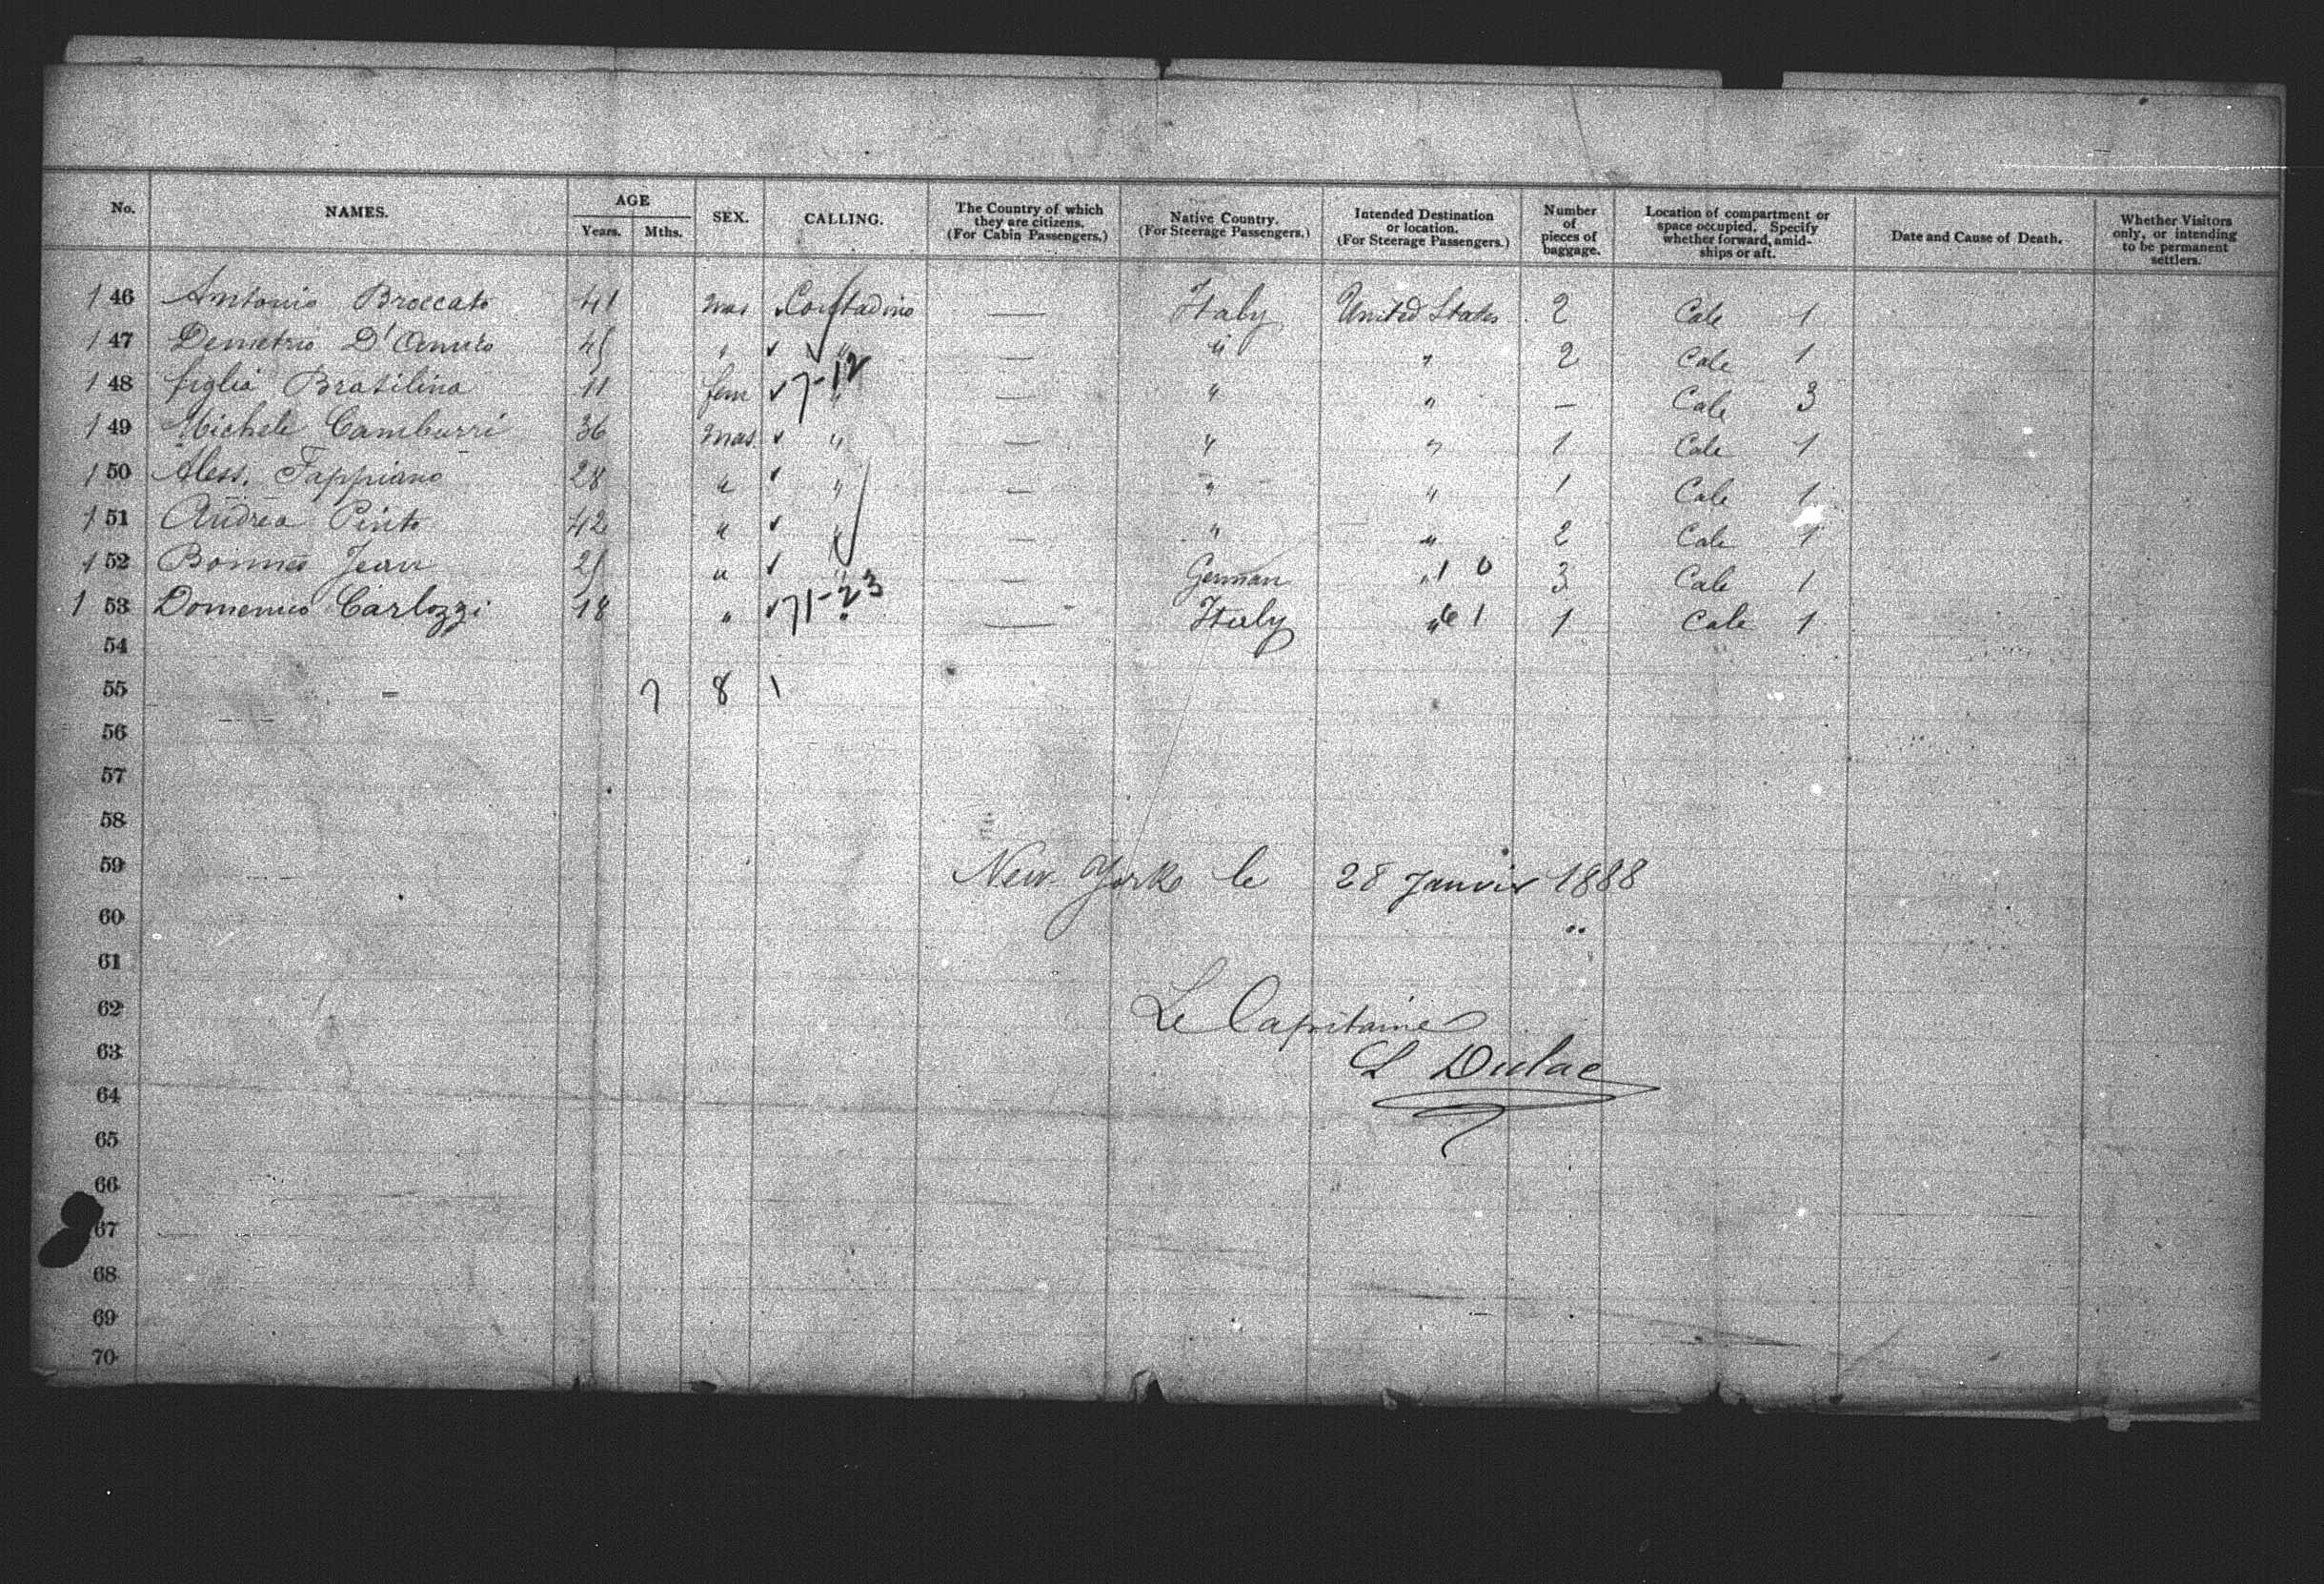 No. NAMES. AGE Years. Mths. SEX. CALLING. The Country of which they are citizens. (For Cabin Passengers.) Native Country. (For Steerage Passengers.) Intended Destination or location. (For Steerage Passengers.) Number of pieces of baggage. Location of compartment or space occupied. Specify whether forward, amidships or aft. Date and Cause of Death. Whether Visitors only, or intending to be permanent settlers.
1 46 Antonio Broccato 41 mas Contadino — Italy United States 2 Cale 1
1 47 Demetrio 45 " " — " " 2 Cale 1
1 48 figlia Brasilina 11 fem 7-12 " — " " — Cale 3
1 49 Michele Camburri 36 mas " — " " 1 Cale 1
1 50 Aless. Tappiano 28 " " — " " 1 Cale 1
1 51 Andrea Pinto 42 " " — " " 2 Cale 1
1 52 Jean 25 " " — German " 1 0 3 Cale 1
1 53 Domenico Carlozzi 18 " 71-23 " — Italy " 6 1 1 Cale 1
54
55 7 8 1
56
57
58
59 New York le 28 Janvier 1888
60
61
62 Le Capitaine
63 L Dulac
64
65
66
67
68
69
70